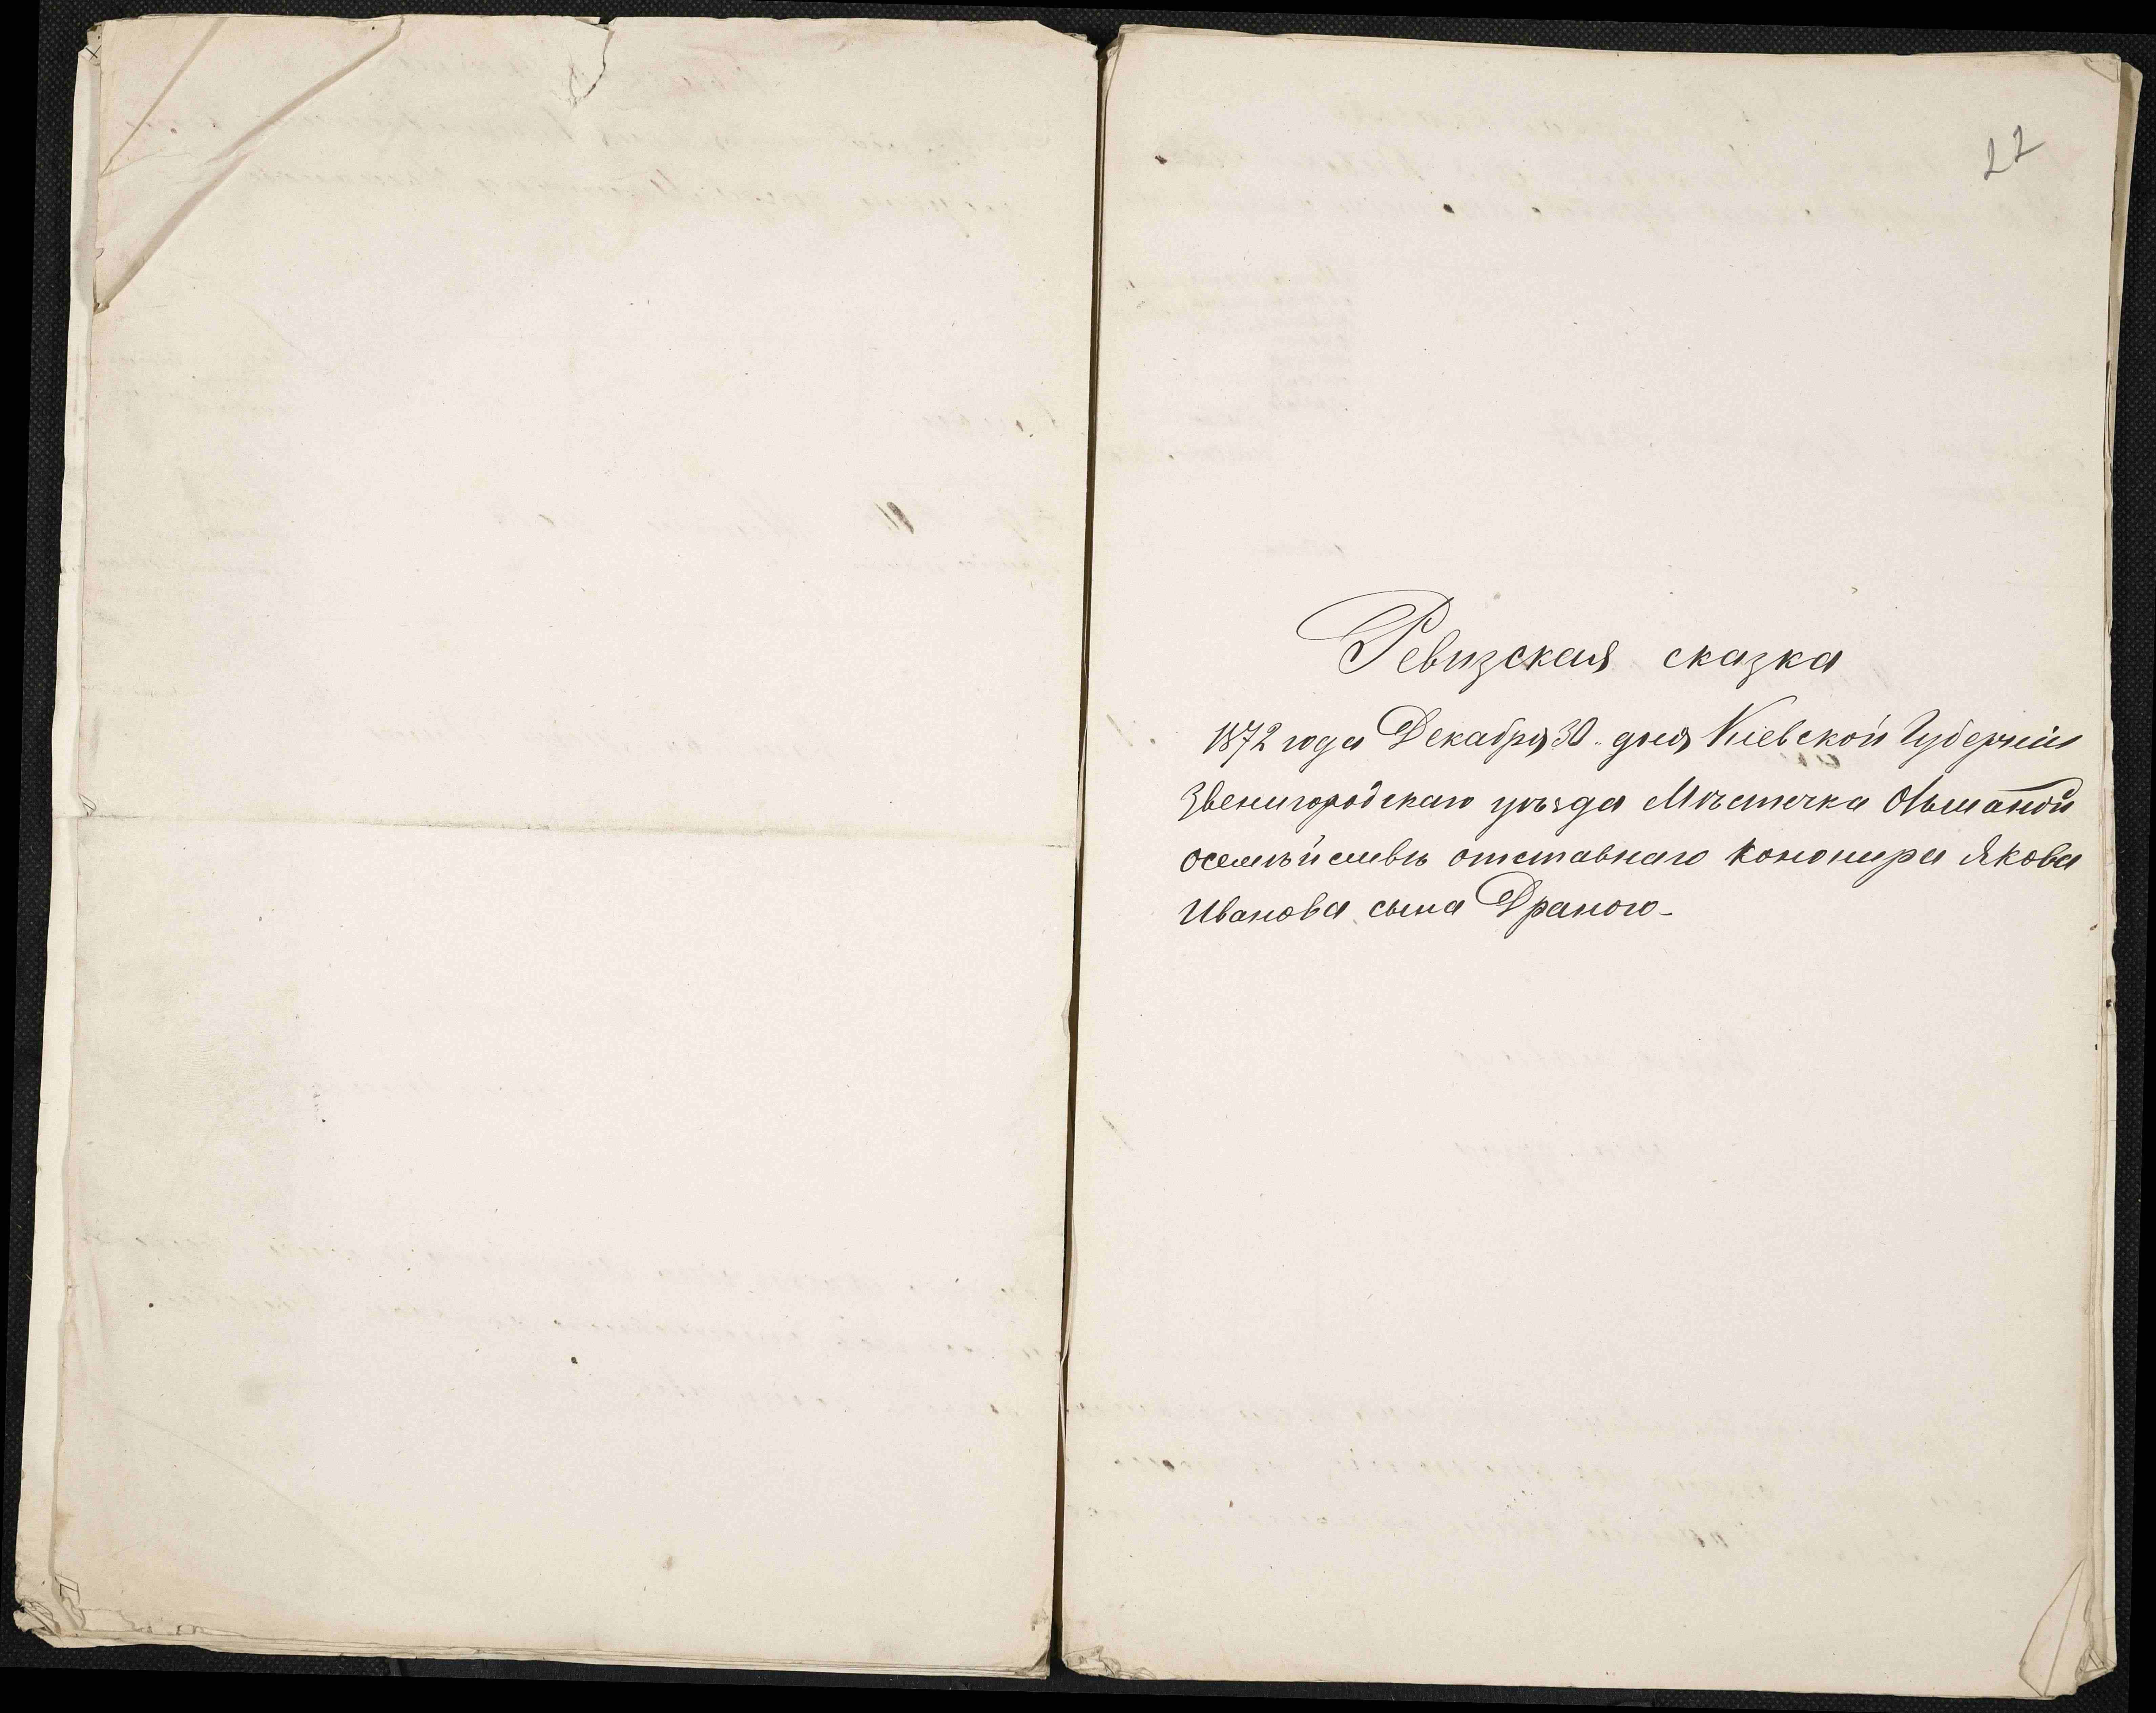 22
Ревизская сказка
1872 года Декабря 30 дня Кіевской Губерніи
Звенигородскаго уѣзда Мѣстечка Ольшаной
осемѣйствѣ отставнаго Кононира Якова
Иванова сына Драного-